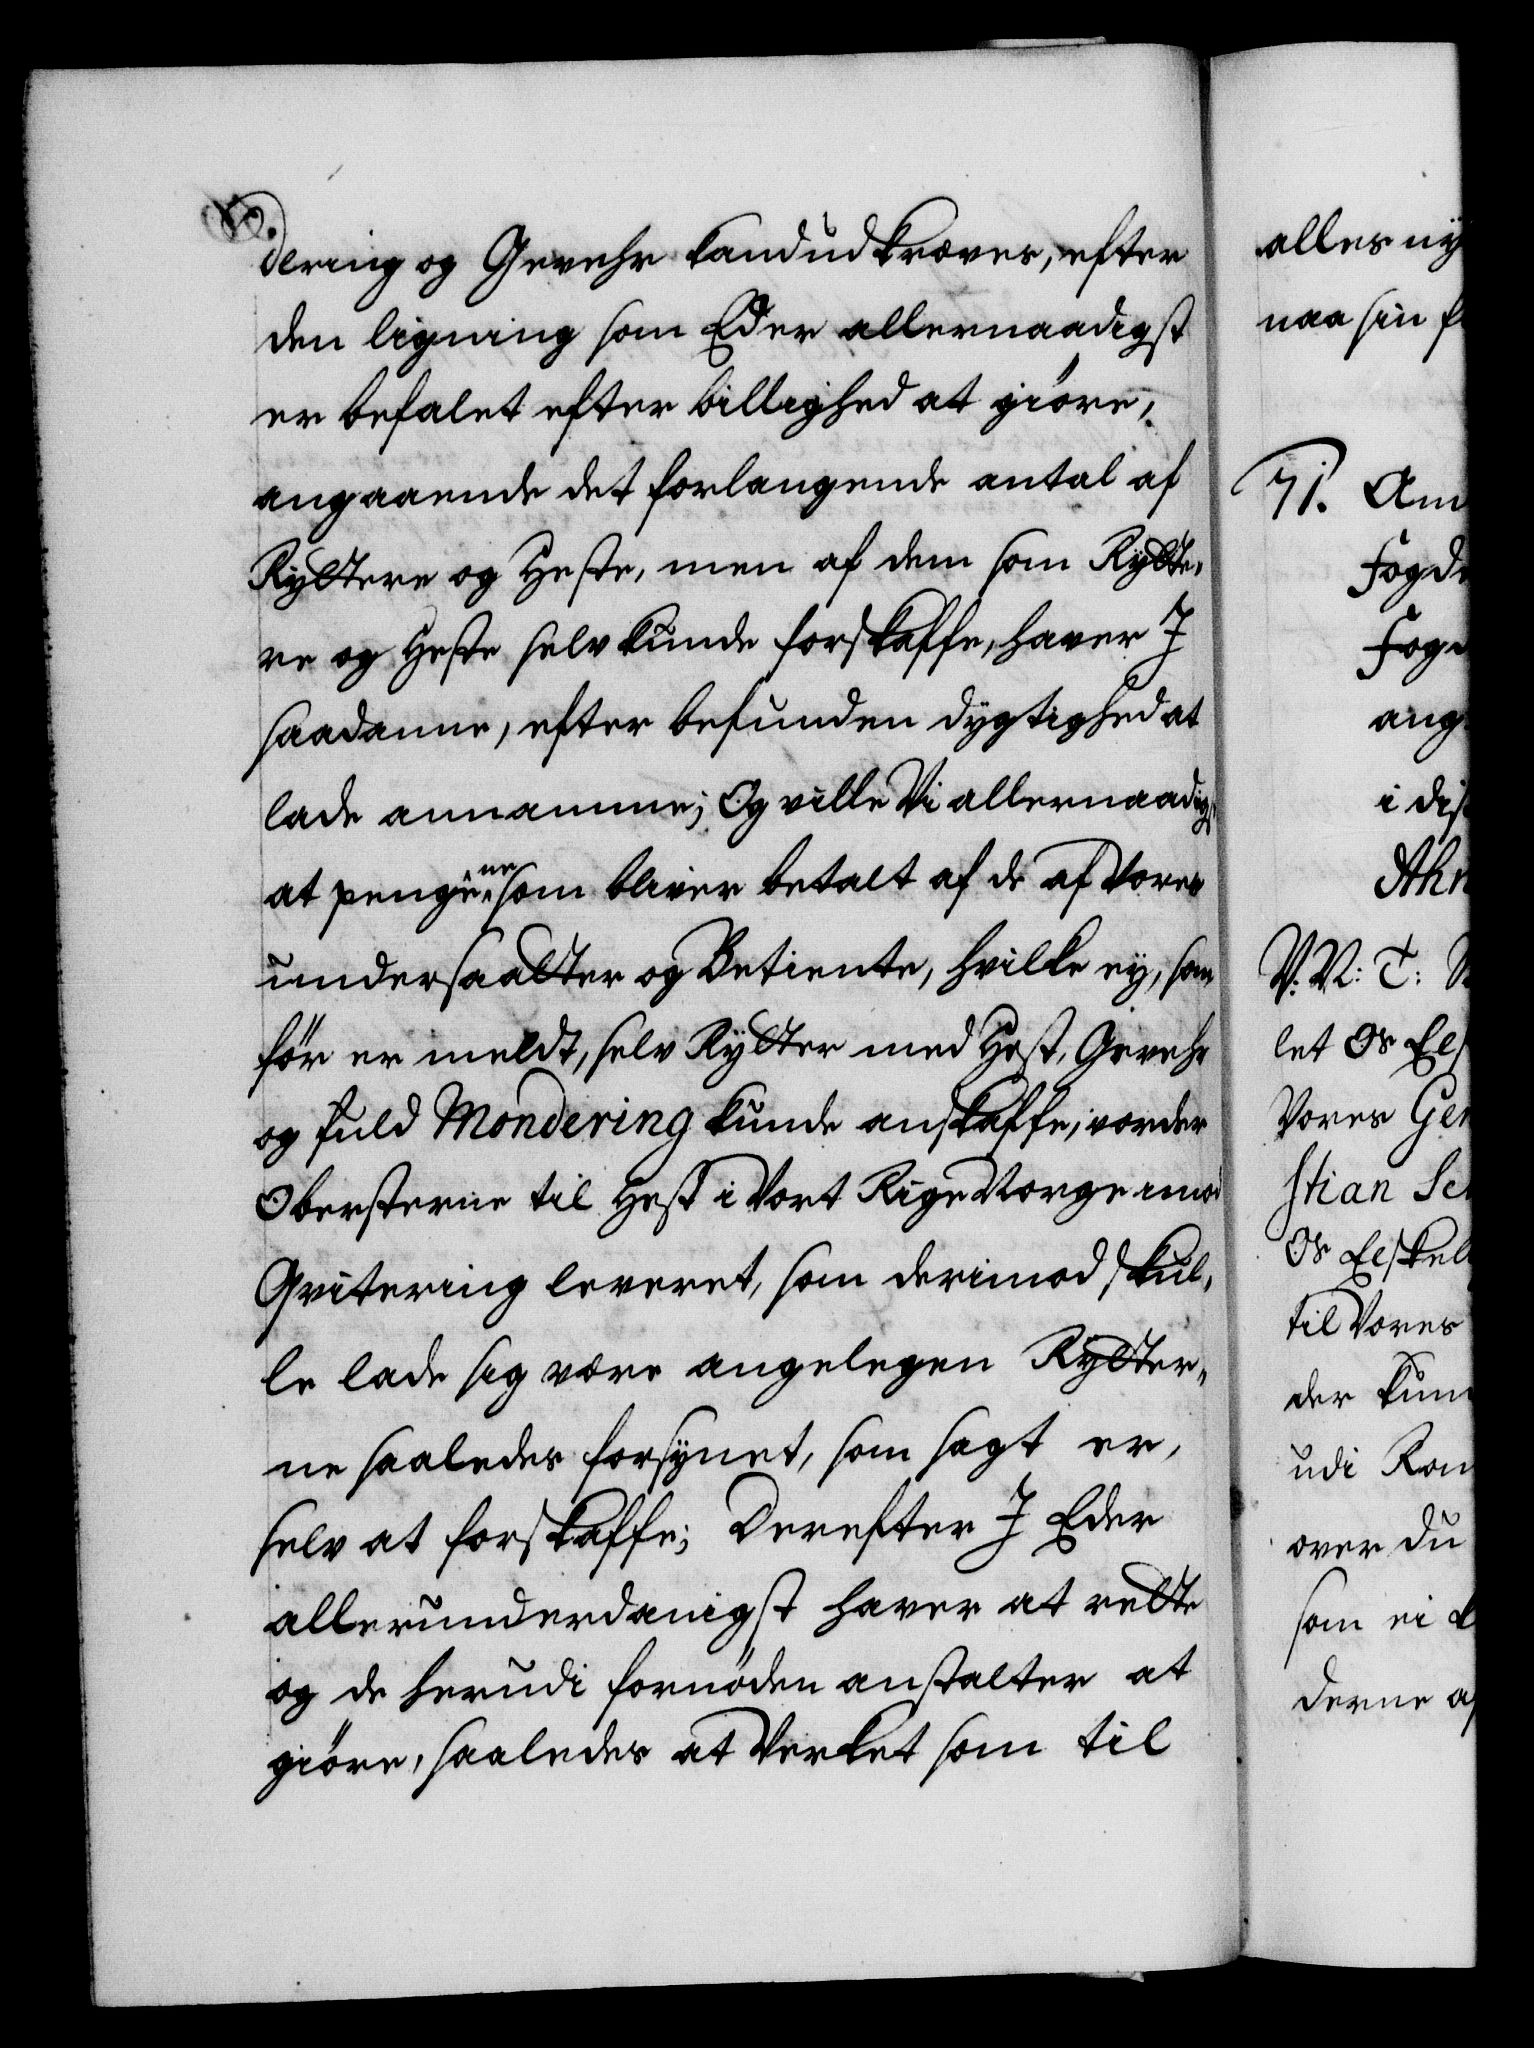 dering og Gevehr kand udkræves, efter
den ligning som Eder allernaadigst
er befalet efter billighed at giöre,
angaaende det forlangende antal af
Ryttere og Heste, men af dem som Rytte-
re og Heste selv kunde forskaffe, haver J
saadanne, efter befunden dygtighed at
lade annamme; Og ville Vi allernaadigst
at pengene som bliver betalt af de af Vores
undersaatter og Betiente, hvilke ey, som
för er meldt, selv Rytter med Hest, Gevehr
og fuld Mondering kunde anskaffe, vorder
Obersterne til Hest i Vort Rige Norge imod
Qvitering leveret, som derimod skul-
le lade sig være angelegen Rytter-
ne saaledes forsynet, som sagt er,
selv at forskaffe; Derefter J Eder
allerunderdanigst haver at rette
og de herudi fornöden anstalter at
giöre, saaledes at Verket som til
alles ny
naa sin f
71. Am
Fogd
Fog
ang
i dis
Ahr
V. N: T:
let Os El
Vores Gen
stian Se
Os Elskel
til Vores
der kun
udi Kon
over du
som ei
derne af